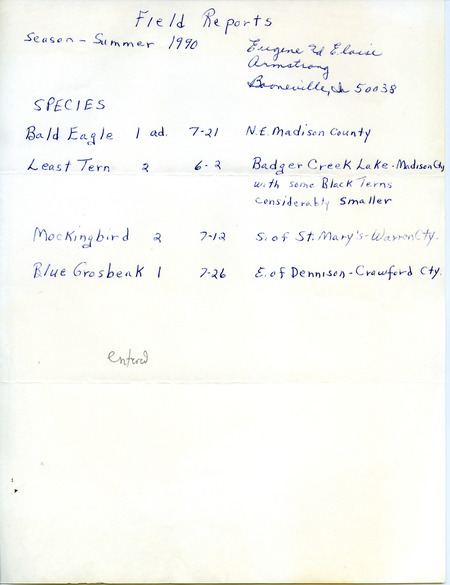 Field Reports
Season - Summer 1990
Eugene & Eloise
Armstrong
Booneville, Ia 50038
SPECIES
Bald Eagle 1 ad. 7-21 N.E. Madison County
Least Tern 2 6-2 Badger Creek Lake - Madison Cty
with some Black Terns
considerably smaller
Mockingbird 2 7-12 S. of St. Mary's - Warren Cty.
Blue Grosbeak 1 7-26 E. of Dennison - Crawford Cty.
entered